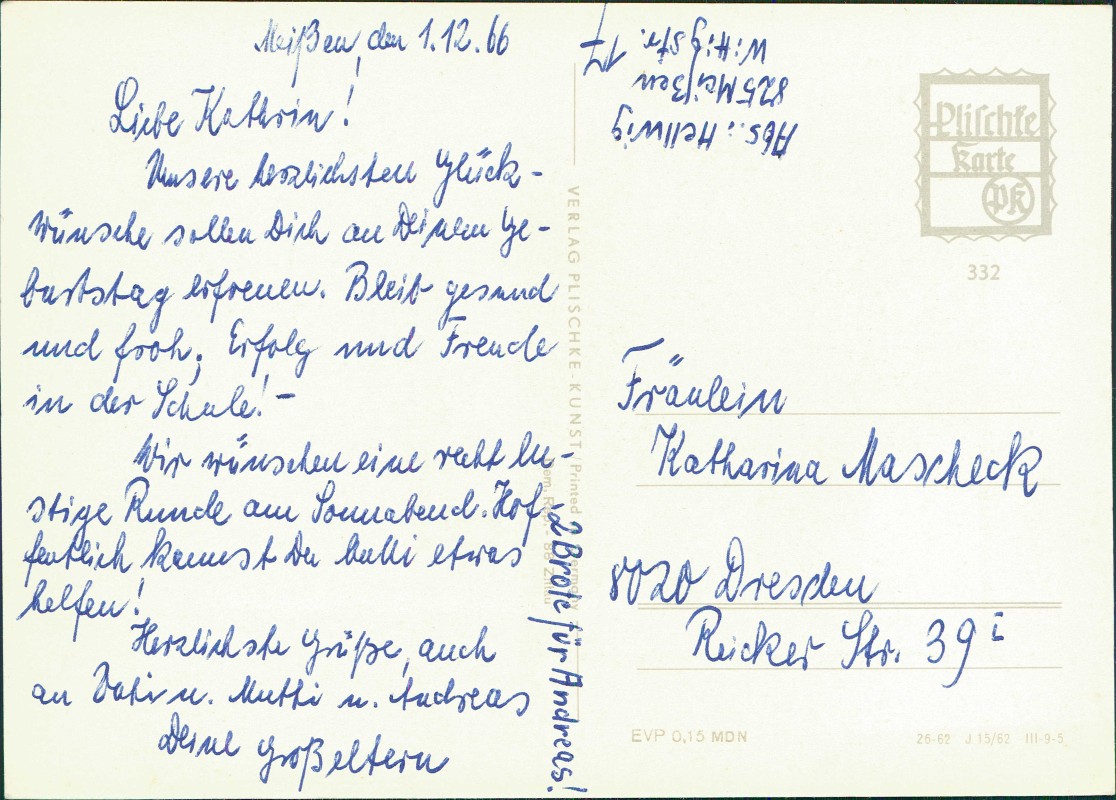 Meißen, den 1.12.66
Liebe Kathrin!
Unsere herzlichsten Glück-
wünsche sollen Dich an Deinem Ge-
burtstag erfreuen. Bleib gesund
und froh; Erfolg und Freude
in der Schule! -
Wir wünschen eine recht lu-
stige Runde am Sonnabend. Hof-
fentlich kannst Du Mutti etwas
helfen!
Herzlichste Grüße, auch
an Vati u. Mutti u. Andreas
Deine Großeltern
2 Brote für Andreas!
VERLAG PLISCHKE-KUNST / Printed Germany
Abs.: Hellwig
825 Meißen
Wittigstr. 17
Plischke
Karte
PK
332
Fräulein
Katharina Mascheck
8020 Dresden
Reicker Str. 39 i
EVP 0,15 MDN
26-62 J 15/62 III-9-5